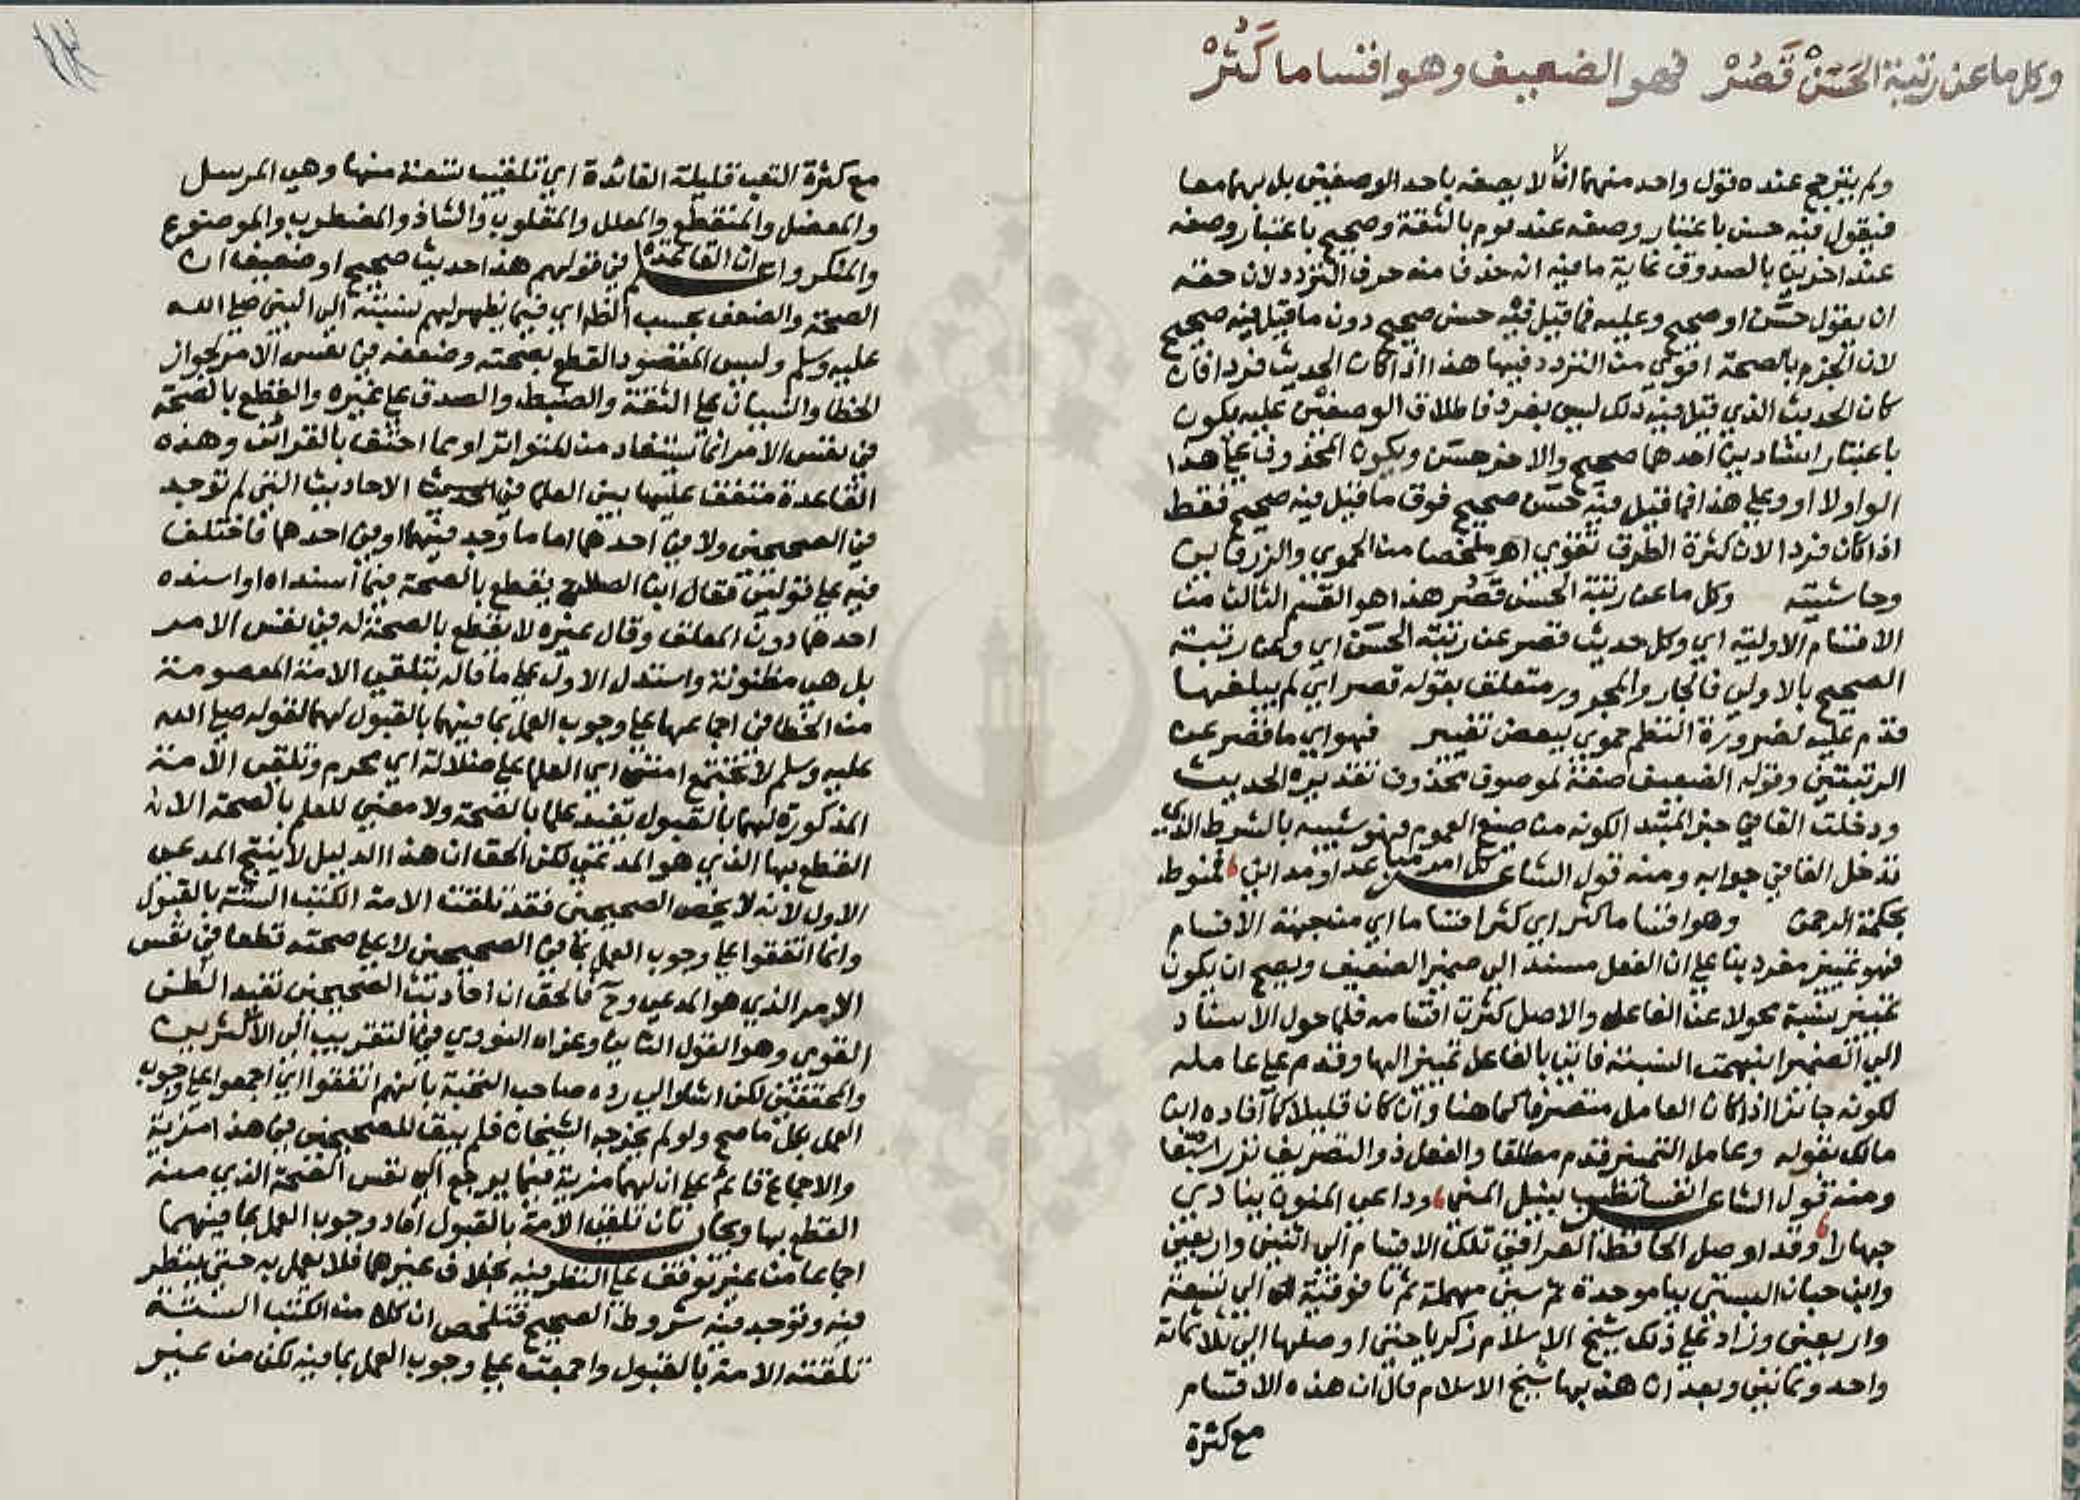 وكل ما عن رتبة الحَسَنْ قَصُرْ فهو الضعيف وهو اقساما كَثُرْ
ولم يترجح عنده قول واحد منهما انه لا يصفه باحد الوصفين بل بهما معا
فيقول فيه حسن باعتبار وصفه عند قوم بالثقة وصحيح باعتبار وصفه
عند اخرين بالصدوق غاية ما فيه انه حذف منه حرف التردد لان حقه
ان يقول حسن او صحيح وعليه فما قيل فيه حسن صحيح دون ما قيل فيه صحيح
لان الجزم بالصحة اقوي من التردد فيها هذا اذا كان الحديث فردا فان
كان الحديث الذي قيل فيه ذلك ليس بفرد فاطلاق الوصفين عليه يكون
باعتبار اسنادين احدهما صحيح والاخر حسن ويكون المحذوف علي هذا
الواو لا او وعلي هذا فما قيل فيه حسن صحيح فوق ما قيل فيه صحيح فقط
اذا كان فردا لان كثرة الطرق تقوي اهـ ملخصا من الحموي والزرقاني
وحاشيته وكل ما عن رتبة الحسن قصر هذا هو القسم الثالث من
الاقسام الاولية اي وكل حديث قصر عن رتبة الحسن اي وعن رتبة
الصحيح بالاولي فالجار والمجرور متعلق بقوله قصر اي لم يبلغها
قدم عليه لضرورة النظم حموي ببعض تغيير فهو اي ما قصر عن
الرتبتين وقوله الضعيف صفة لموصوف محذوف تقديره الحديث
ودخلت الفا في خبر المبتدا لكونه من صيغ العموم فهو شبيه بالشرط الذي
تدخل الفا في جوابه ومنه قول الشاعر كل امر مباعد او مداني فمنوط
بحكمة الرحمن وهو اقساما كثر اي كثر اقساما اي من جهة الاقسام
فهو تمييز مفرد بنا علي ان الفعل مسند الي ضمير الضعيف ويصح ان يكون
تمييز نسبة محولا عن الفاعل والاصل كثرت اقسامه فلما حول الاسناد
الي الضمير انبهمت النسبة فاتي بالفاعل تمييزا لها وقدم علي عامله
لكونه جائزا اذا كان العامل متصرفا كما هنا وان كان قليلا كما افاده ابن
مالك بقوله وعامل التمييز قدم مطلقا والفعل ذو التصريف نزرا سبقا
ومنه قول الشاعر انفسا تطيب بنيل المني وداعي المنون ينادي
جهارا وقد اوصل الحافظ العراقي تلك الاقسام الي اثنين واربعين
وابن حبان البستي ببا موحدة ثم سين مهملة ثم تا فوقية الي تسعة
واربعين وزاد علي ذلك شيخ الاسلام زكريا حتي اوصلها الي ثلاثمائة
واحد وثمانين وبعد ان هذبها شيخ الاسلام قال ان هذه الاقسام
مع كثرة
مع كثرة التعب قليلة الفائدة اي تلقيب تسعة منها وهي المرسل
والمعضل والمنقطع والمعلل والمقلوب والشاذ والمضطرب والموضوع
والمنكر واعلم ان الفائدة في قولهم هذا حديث صحيح او ضعيف ان
الصحة والضعف بحسب الظاهر اي فيما يظهر لهم نسبته الي النبي صلي الله
عليه وسلم وليس المقصود القطع بصحته وضعفه في نفس الامر لجواز
الخطا والنسيان علي الثقة والضبط والصدق علي غيره والقطع بالصحة
في نفس الامر انما يستفاد من المتواتر او مما احتف بالقرائن وهذه
القاعدة متفقا عليها بين العلما في الاحاديث التي لم توجد
في الصحيحين ولا في احدهما اما ما وجد فيهما او في احدهما فاختلف
فيه علي قولين فقال ابن الصلاح يقطع بالصحة فيما اسنداه او اسنده
احدهما دون المعلق وقال غيره لا يقطع بالصحة له في نفس الامر
بل هي مظنونة واستدل الاول علي ما قاله بتلقي الامة المعصومة
من الخطا في اجماعها علي وجوب العمل بما فيهما بالقبول لهما لقوله صلي الله
عليه وسلم لا تجتمع امتي اي العلما علي ضلالة اي محرم وتلقي الامة
المذكورة لهما بالقبول يفيد علما بالصحة ولا معني للعلم بالصحة الا
القطع بها الذي هو المدعي لكن الحق ان هذا الدليل لا ينتج المدعي
الاول لانه لا يخص الصحيحين فقد تلقت الامة الكتب الستة بالقبول
وانما اتفقوا علي وجوب العمل بما في الصحيحين لا علي صحته قطعا في نفس
الامر الذي هو المدعي وح فالحق ان احاديث الصحيحين تفيد الظن
القوي وهو القول الثاني وعزاه النووي في التقريب الي الاكثرين
والمحققين لكن اشار الي رده صاحب النخبة بانهم اتفقوا اي اجمعوا علي وجوب
العمل بكل ما صح ولو لم يخرجه الشيخان فلم يبق للصحيحين في هذا مزية
والاجماع قائم علي ان لهما مزية فيما يرجع الي نفس الصحة الذي منه
القطع بها ويجاب بان تلقي الامة بالقبول افاد وجوب العمل بما فيهما
اجماعا من غير توقف علي النظر فيه بخلاف غيرهما فلا يعمل به حتي ينظر
فيه وتوجد فيه شروط الصحيح فتلخص ان كلا من الكتب الستة
تلقته الامة بالقبول واجمعت علي وجوب العمل بما فيه لكن من غير